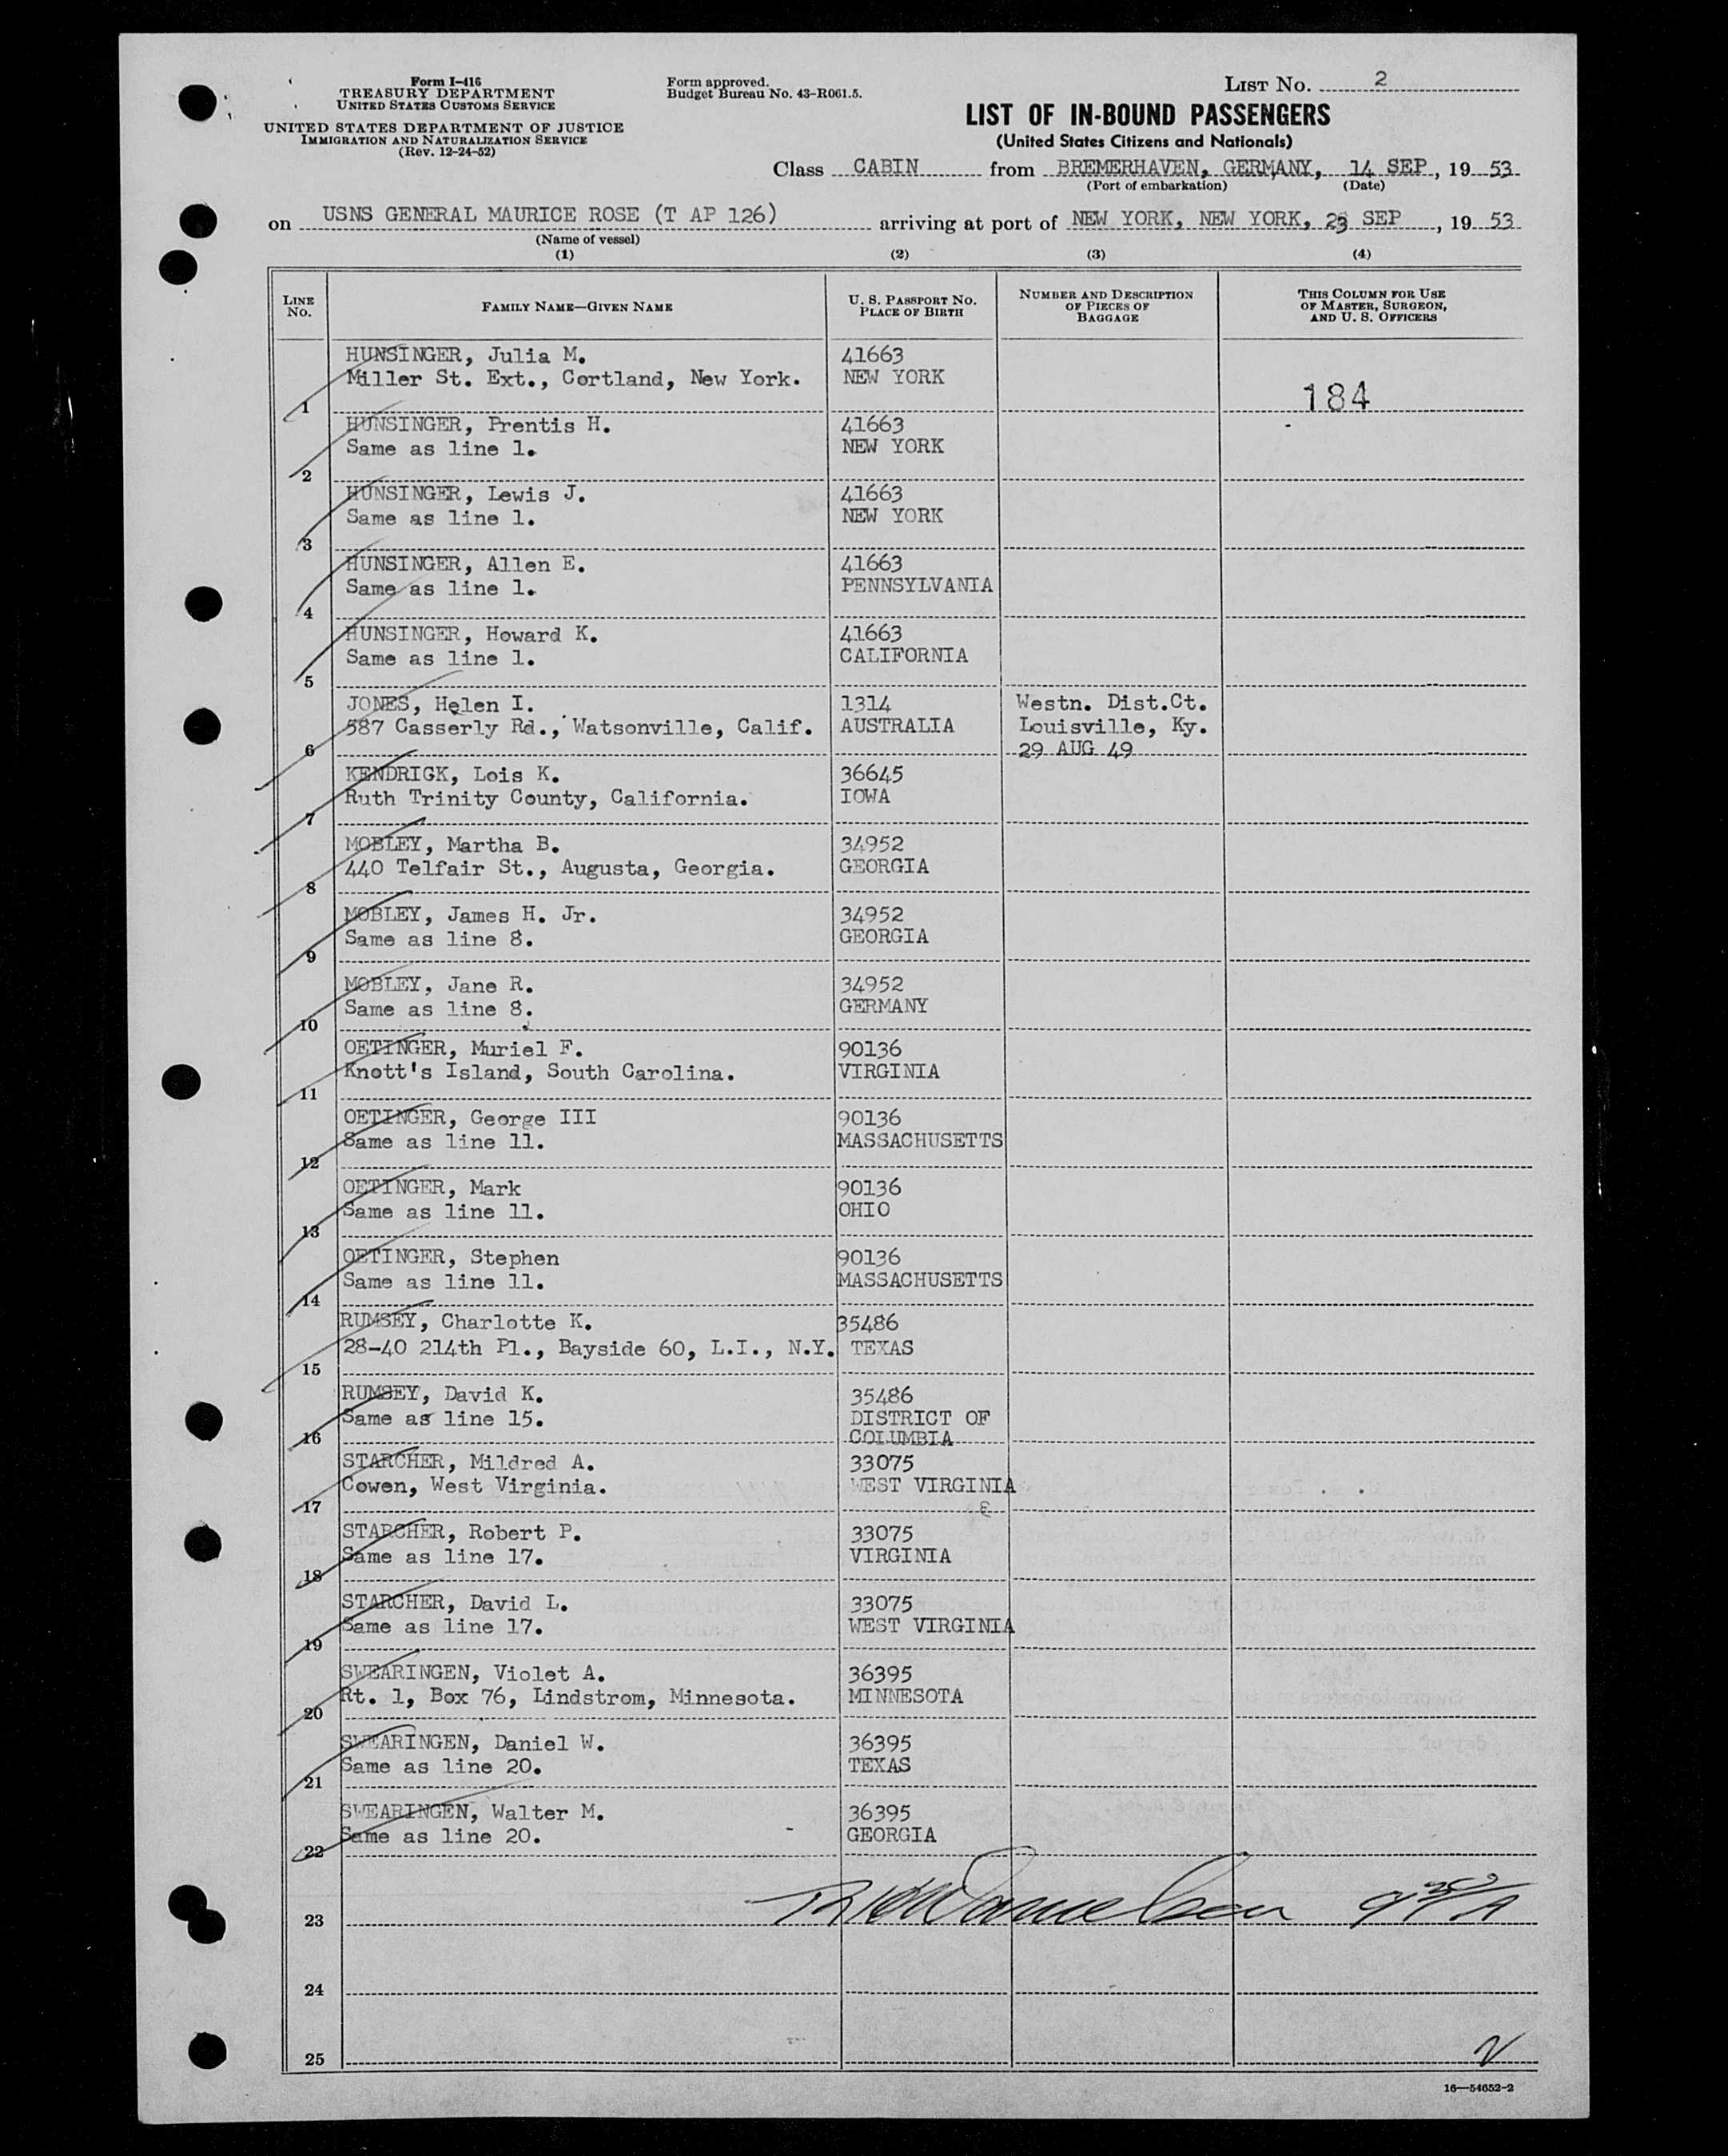 Form I-416
TREASURY DEPARTMENT
UNITED STATES CUSTOMS SERVICE
UNITED STATES DEPARTMENT OF JUSTICE
IMMIGRATION AND NATURALIZATION SERVICE
(Rev. 12-24-52)
Form approved.
Budget Bureau No. 43-R061.5.
LIST NO. 2
LIST OF IN-BOUND PASSENGERS
(United States Citizens and Nationals)
Class CABIN from BREMERHAVEN, GERMANY, 14 SEP, 19 53
(Port of embarkation) (Date)
on USNS GENERAL MAURICE ROSE (T AP 126) arriving at port of NEW YORK, NEW YORK, 23 SEP, 19 53
(Name of vessel)
(1) (2) (3) (4)
LINE NO. FAMILY NAME—GIVEN NAME U. S. PASSPORT NO. PLACE OF BIRTH NUMBER AND DESCRIPTION OF PIECES OF BAGGAGE THIS COLUMN FOR USE OF MASTER, SURGEON, AND U. S. OFFICERS
HUNSINGER, Julia M. 41663
Miller St. Ext., Cortland, New York. NEW YORK
1 184
HUNSINGER, Prentis H. 41663
Same as line 1. NEW YORK
2
HUNSINGER, Lewis J. 41663
Same as line 1. NEW YORK
3
HUNSINGER, Allen E. 41663
Same as line 1. PENNSYLVANIA
4
HUNSINGER, Howard K. 41663
Same as line 1. CALIFORNIA
5
JONES, Helen I. 1314 Westn. Dist.Ct.
587 Casserly Rd., Watsonville, Calif. AUSTRALIA Louisville, Ky.
6 29 AUG 49
KENDRIGK, Lois K. 36645
Ruth Trinity County, California. IOWA
7
MOBLEY, Martha B. 34952
440 Telfair St., Augusta, Georgia. GEORGIA
8
MOBLEY, James H. Jr. 34952
Same as line 8. GEORGIA
9
MOBLEY, Jane R. 34952
Same as line 8. GERMANY
10
OETINGER, Muriel F. 90136
Knott's Island, South Carolina. VIRGINIA
11
OETINGER, George III 90136
Same as line 11. MASSACHUSETTS
12
OETINGER, Mark 90136
Same as line 11. OHIO
13
OETINGER, Stephen 90136
Same as line 11. MASSACHUSETTS
14
RUMSEY, Charlotte K. 35486
28-40 214th Pl., Bayside 60, L.I., N.Y. TEXAS
15
RUMSEY, David K. 35486
Same as line 15. DISTRICT OF
16 COLUMBIA
STARCHER, Mildred A. 33075
Cowen, West Virginia. WEST VIRGINIA
17
STARCHER, Robert P. 33075
Same as line 17. VIRGINIA
18
STARCHER, David L. 33075
Same as line 17. WEST VIRGINIA
19
SWEARINGEN, Violet A. 36395
Rt. 1, Box 76, Lindstrom, Minnesota. MINNESOTA
20
SWEARINGEN, Daniel W. 36395
Same as line 20. TEXAS
21
SWEARINGEN, Walter M. 36395
Same as line 20. GEORGIA
22
23
24
25
16—54652-2